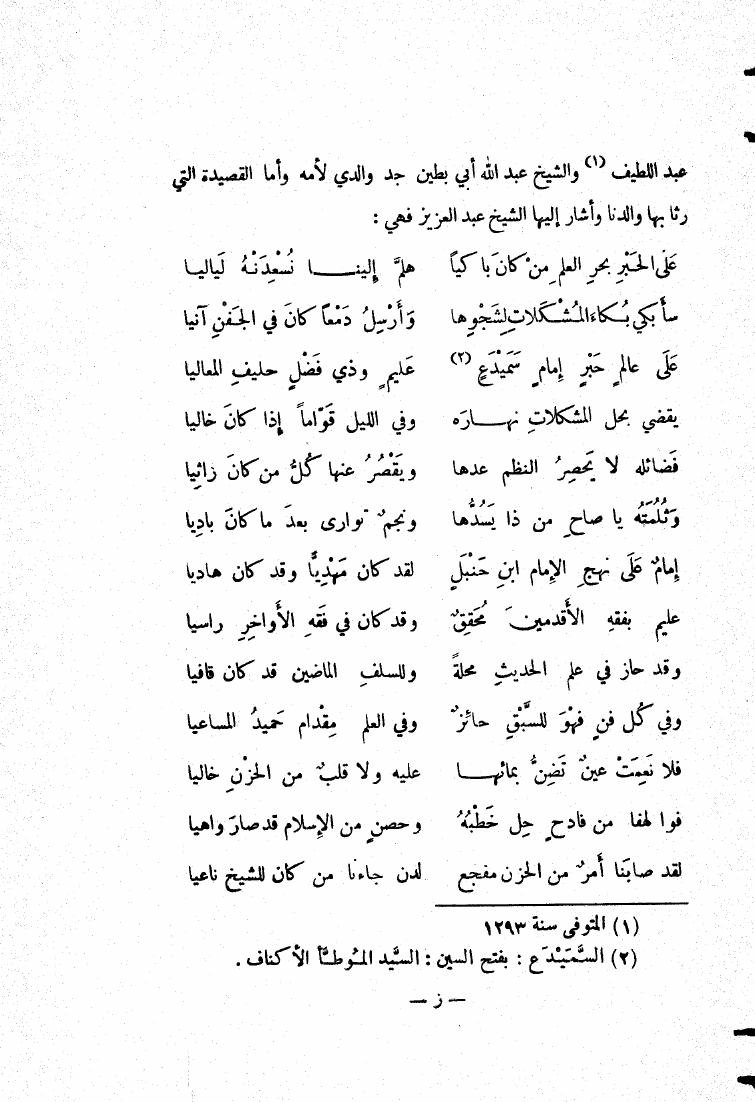 عبد اللطيف (١) والشيخ عبد الله أبي بطين جد والدي لأمه وأما القصيدة التي
رثا بها والدنا وأشار إليها الشيخ عبد العزيز فهي :
عَلَى الحَبْرِ بحرِ العلمِ مِنْ كانَ باكياً هلمَّ إلينا نُسْعِدَنْهُ لَياليا
سأبكي بُكاءَ المُشْكَلاتِ لِشَجْوِها وَأَرْسِلُ دَمْعاً كانَ في الجَفْنِ آنيا
عَلَى عالمٍ حَبْرٍ إمامٍ سَمَيْدَعٍ (٢) عَليمٍ وذي فَضْلٍ حليفِ المعاليا
يقضي بحل المشكلاتِ نهارَه وفي الليل قَوّاماً إذا كانَ خاليا
فَضائله لا يَحصِرُ النظم عدها ويَقْصُرُ عنها كُلُّ من كانَ راثِيا
وَثُلُمَتُه يا صاحِ من ذا يَسُدُّها ونجمٌ توارى بعدَ ما كانَ بادِيا
إمامٌ عَلَى نهجِ الإمام ابنِ حَنْبَلٍ لقد كان مَهْدِيًّا وقد كان هاديا
عليم بفقهِ الأقدمينَ مُحَقِقٌ وقد كان في فَقهِ الأَواخِرِ راسيا
وقد حاز في علم الحديثِ محلةً وللسلفِ الماضين قد كان قافيا
وفي كُل فنٍ فهْوَ للسَّبْقِ حائِزٌ وفي العلم مِقْدام حَميدُ المساعيا
فلا نَعِمَتْ عينٌ تَضِنُّ بمائها عليه ولا قلبٌ من الحزْنِ خاليا
فوا لهفا من فادحٍ حِل خَطْبُهُ وحصنٍ من الإسلام قد صارَ واهيا
لقد صابَنا أمرٌ من الحزن مفجع لدن جاءنا من كان للشيخ ناعيا
(١) المتوفى سنة ١٢٩٣
(٢) السَّمَيْدَع : بفتح السين : السَّيد المُوطَّأ الأكناف .
— ز —